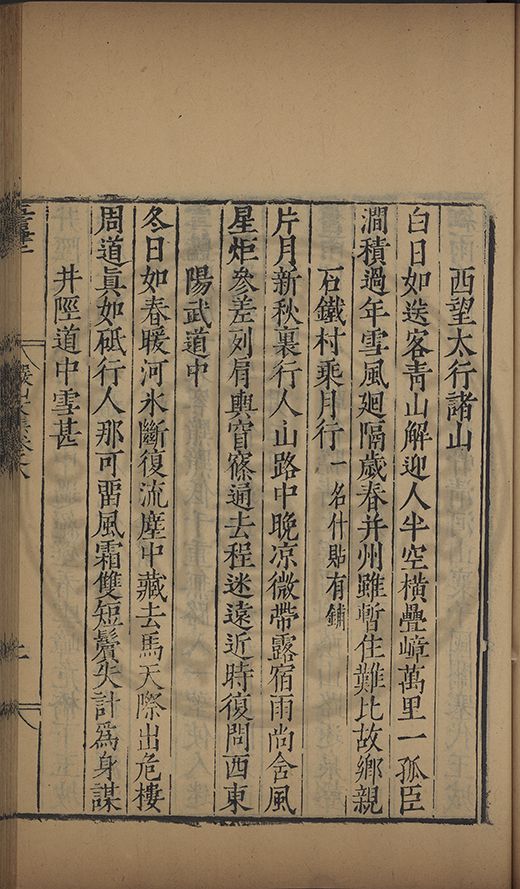 西望太行諸山
白日如送客青山解迎人半空橫疊嶂萬里一孤臣
澗積過年雪風迴隔歲春并州雖暫住難比故鄉親
石鐵村乘月行一名什貼有鋪
片月新秋裏行人山路中晚凉微帶露宿雨尚含風
星炬參差列肩輿窅窱通去程迷遠近時復問西東
陽武道中
冬日如春暖河氷斷復流塵中藏去馬天際出危樓
周道真如砥行人那可畱風霜雙短鬢失計爲身謀
井陘道中雪甚